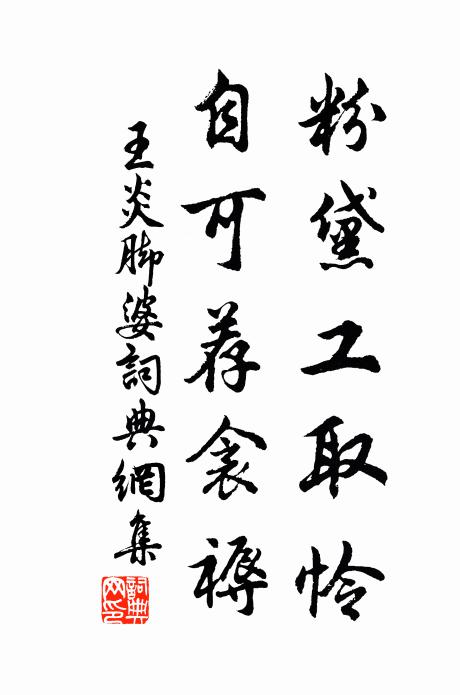 粉黛工取怜
自可荐衾褥
王炎脚婆詞典網集
詞典网印